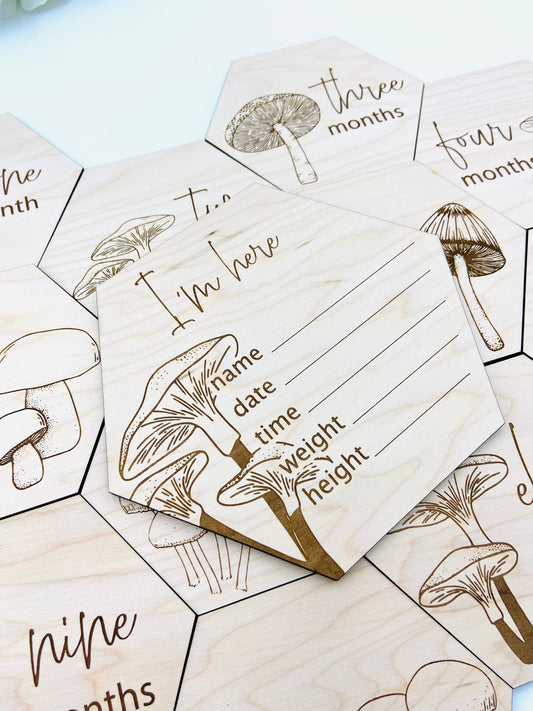 three
months
four
months
I'm here
name
date
time
weight
height
nine